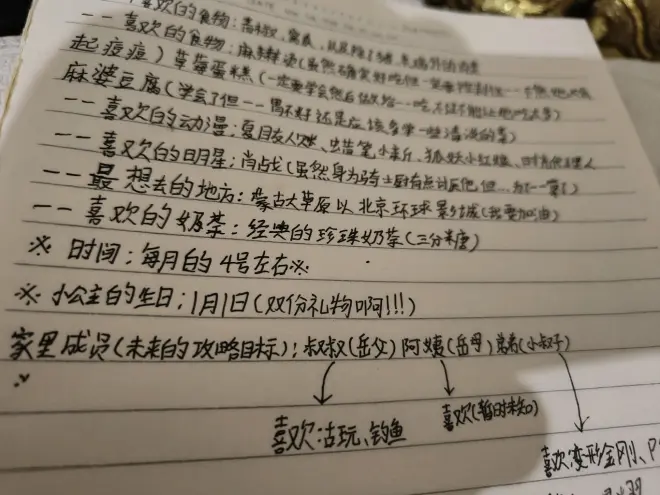 喜欢的食物:青椒,
--喜欢的食物:麻辣烫(虽然确实好吃但一定要控制住--不然她又会
起痘痘)草莓蛋糕(一定要学会然后做给--吃,不过不能让她吃太多)
麻婆豆腐(学会了但--胃不好还是应该多学一些清淡的菜)
--喜欢的动漫:夏目友人帐、蜡笔小新、狐妖小红娘、时光代理人
--喜欢的明星:肖战(虽然身为骑士厨有点讨厌他但…为了--算了)
--最想去的地方:蒙古大草原以北京环球影城(我要加油)
--喜欢的奶茶:经典的珍珠奶茶(三分糖)
※时间:每月的4号左右※
※小公主的生日:1月1日(双份礼物啊!!!)
家里成员(未来的攻略目标):叔叔(岳父)阿姨(岳母)弟弟(小叔子)
喜欢:古玩、钓鱼
喜欢(暂时未知)
喜欢:变形金刚、P